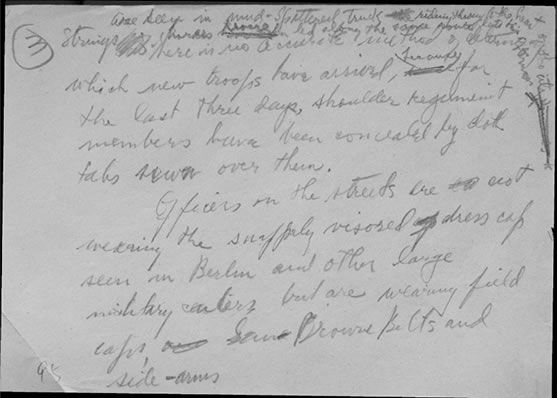 are seen in mud-spattered trucks riding through the
Strings horses led along the same routes to
There is no accurate method of determining
which new troops have arrived, for
the last three days, shoulder regiment
members have been concealed by cloth
tabs sewn over them.
Officers on the streets are not
wearing the snappily visored dress cap
seen in Berlin and other large
military centers but are wearing field
caps, Sam Browne belts and
side-arms